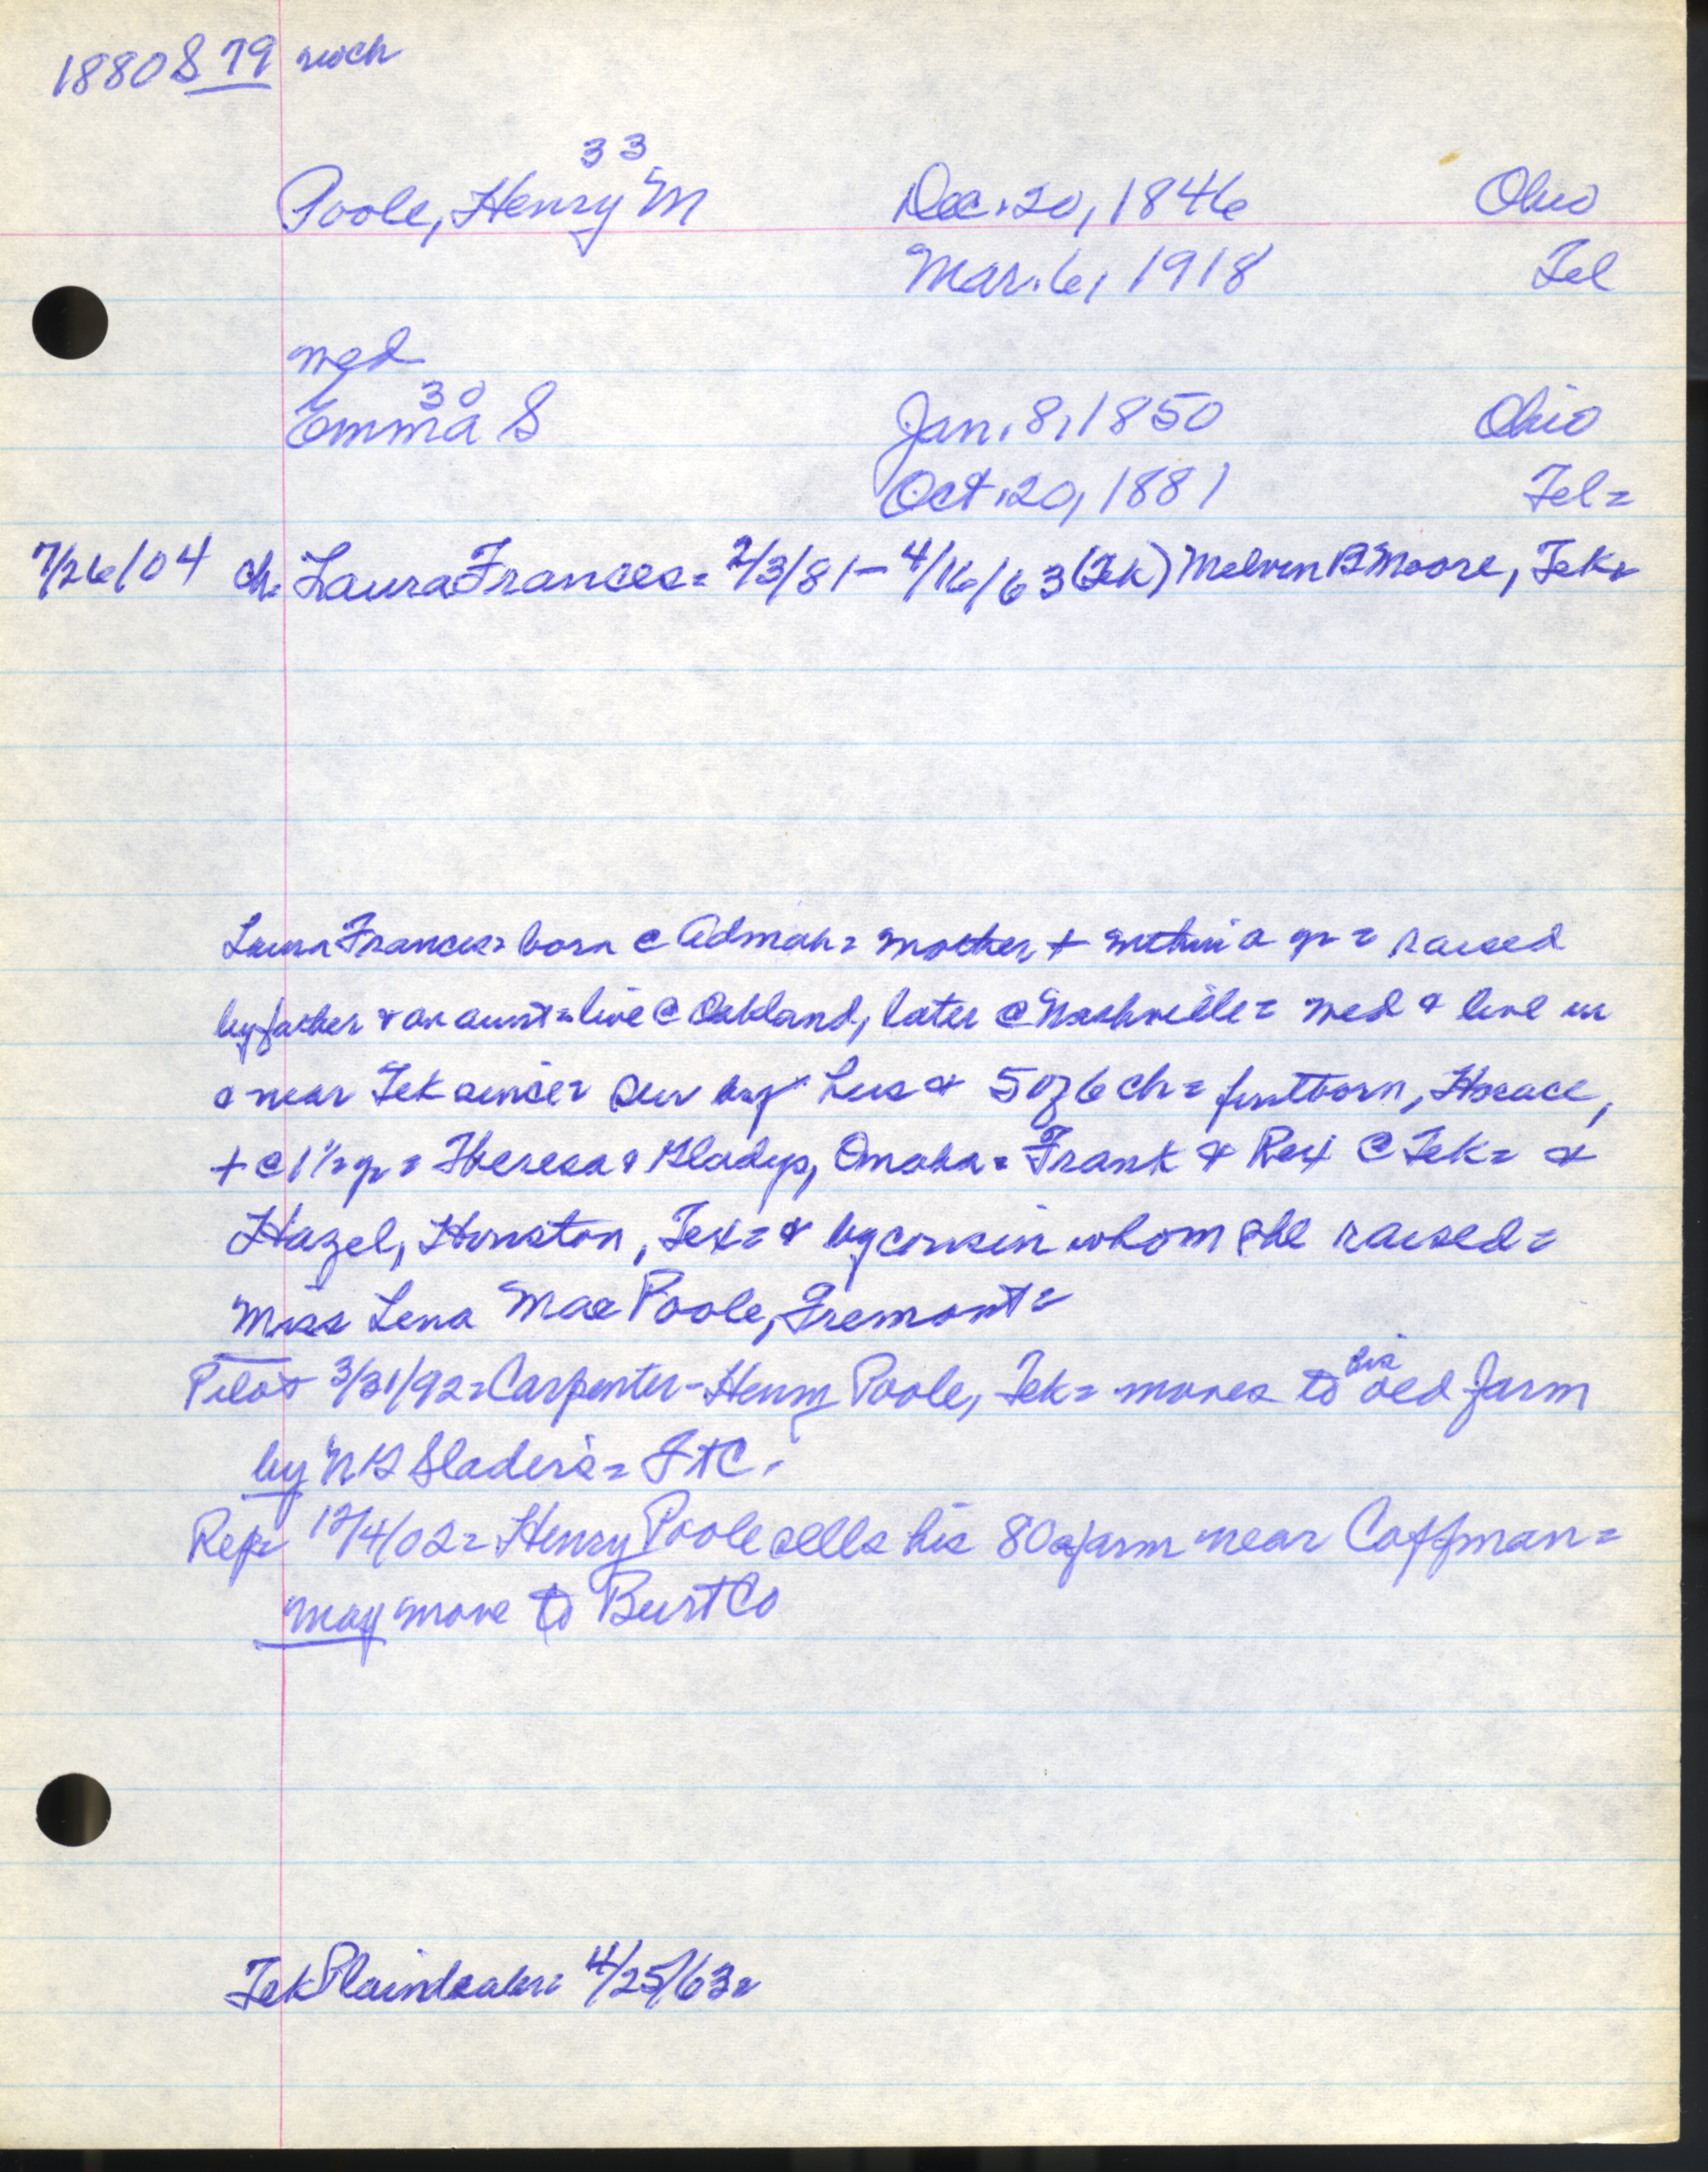 1880 S 79
33
Poole, Henry M Dec. 20, 1846 Ohio
Mar. 6, 1918 Tel
med
30
Emma S Jan. 8, 1850 Ohio
Oct. 20, 1881 Tel =
7/26/04 ch. Laura Frances = 2/3/81 - 4/16/63 (Tek) Melvin B Moore, Tek =
Laura Frances = born @ Admah = mother + within a yr = raised
by father & an aunt = live @ Oakland, later @ Nashville = med & live in
& near Tek since = sur by hus & 5 of 6 ch = firstborn, Horace,
+ @ 1 1/2 yr = Theresa & Gladys, Omaha = Frank & Rex @ Tek = &
Hazel, Houston, Tex = & by cousin whom she raised =
Miss Lena Mae Poole, Fremont =
Pilot 3/31/92 = Carpenter - Henry Poole, Tek = moves to his old farm
by Slader's = FtC.
Rep = 12/4/02 = Henry Poole sells his 80a farm near Coffman =
may move to Burt Co
Tek Plaindealer = 4/25/63 =